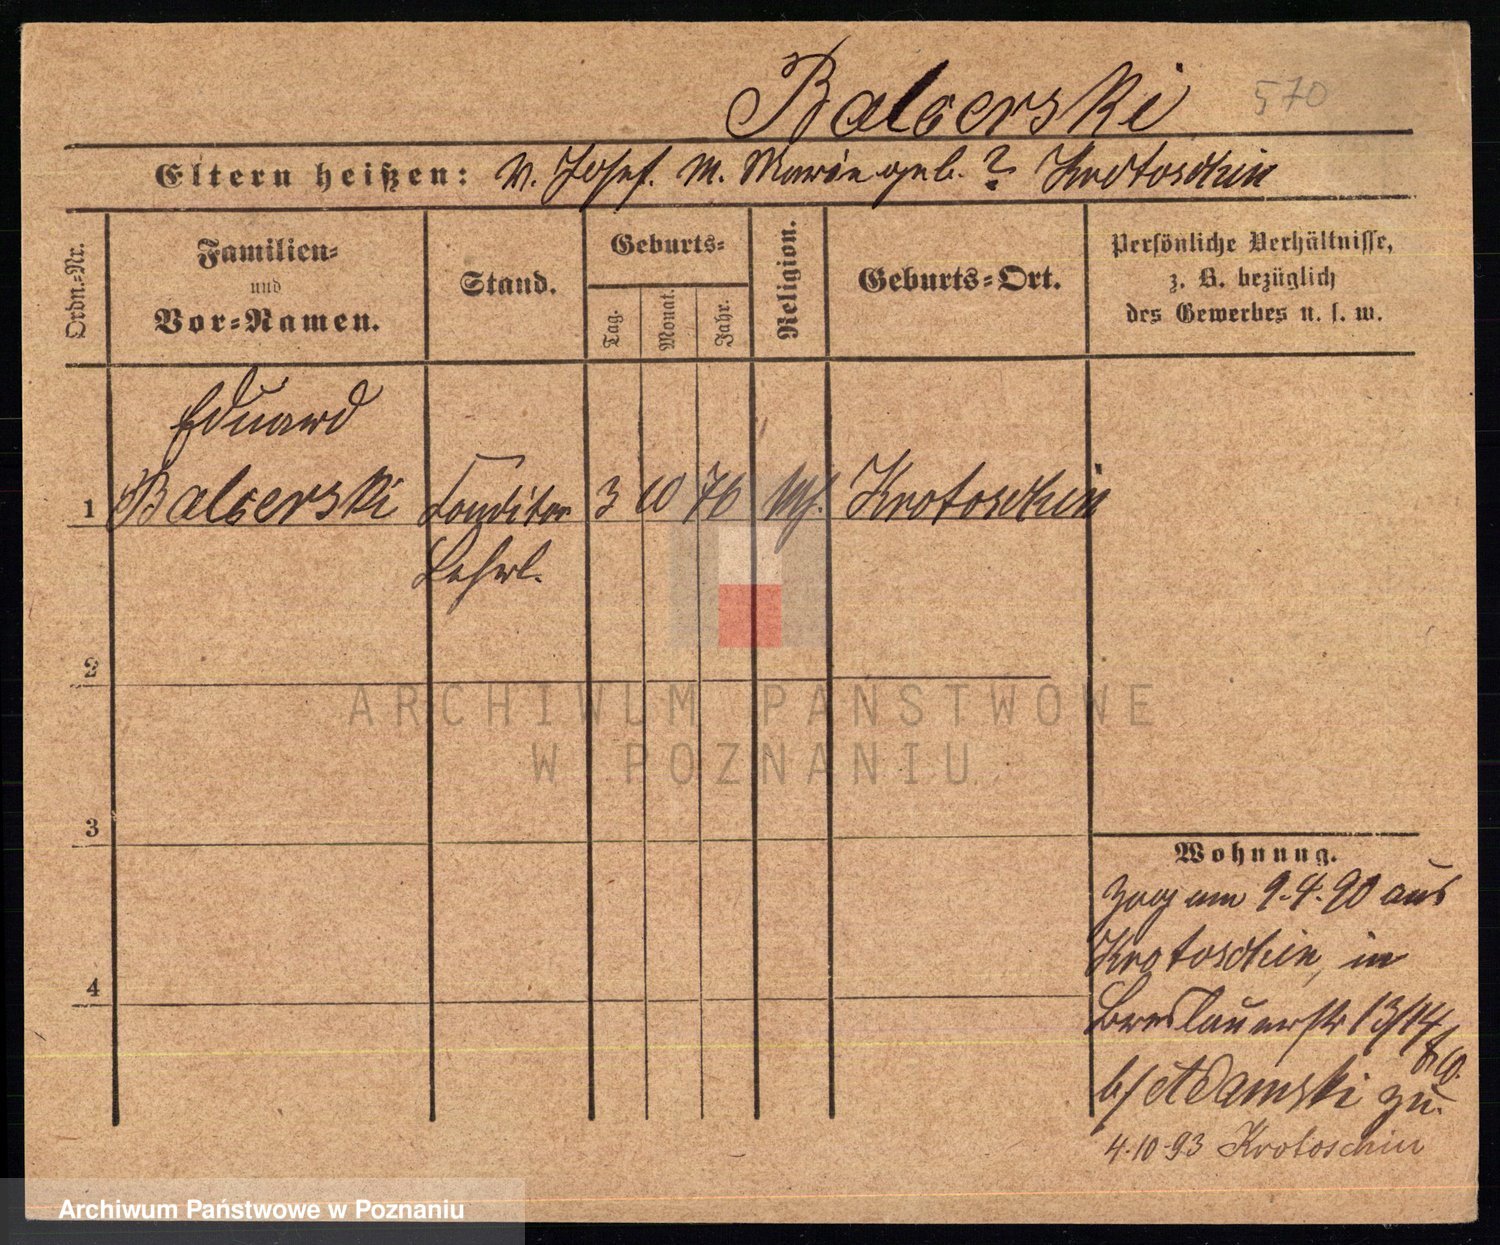 Balcerski 570
Eltern heißen: V. Josef. M. Marie geb. ? Krotoschin
Ordn.-Nr.
Familien-
und
Vor-Namen.
Stand.
Geburts-
Tag.
Monat.
Jahr.
Religion.
Geburts-Ort.
Persönliche Verhältnisse,
z. B. bezüglich
des Gewerbes u. s. w.
Eduard
1 Balcerski Conditor 3 10 76 Krotoschin
Lehrl.
2
ARCHIWUM PAŃSTWOWE
W POZNANIU
3
4
Wohnung.
zog am 9.4.90 aus
Krotoschin, in
Breslauerstr 13/14
b/ Adamski zu.
4.10.93 Krotoschin
Archiwum Państwowe w Poznaniu